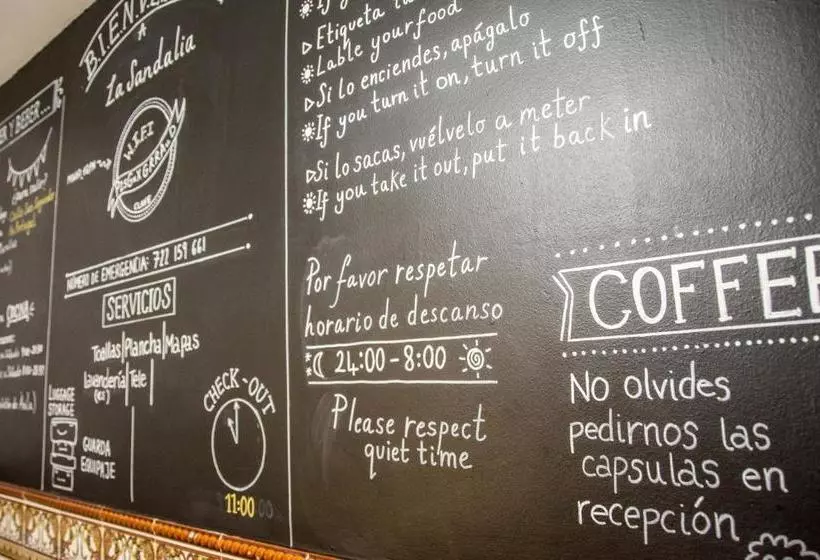 Y BEBER...
BIENVE
A
La Sandalia
WIFI
CLAVE
NÚMERO DE EMERGENCIA: 722 159 661
SERVICIOS
Toallas|Plancha|Mapas
Lavandería|Tele|
LUGGAGE
STORAGE
GUARDA
EQUIPAJE
CHECK-OUT
11:00
COCINA
Etiqueta tu
Lable your food
Si lo enciendes, apágalo
If you turn it on, turn it off
Si lo sacas, vuélvelo a meter
If you take it out, put it back in
Por favor respetar
horario de descanso
24:00-8:00
Please respect
quiet time
COFFE
No olvides
pedirnos las
capsulas en
recepción